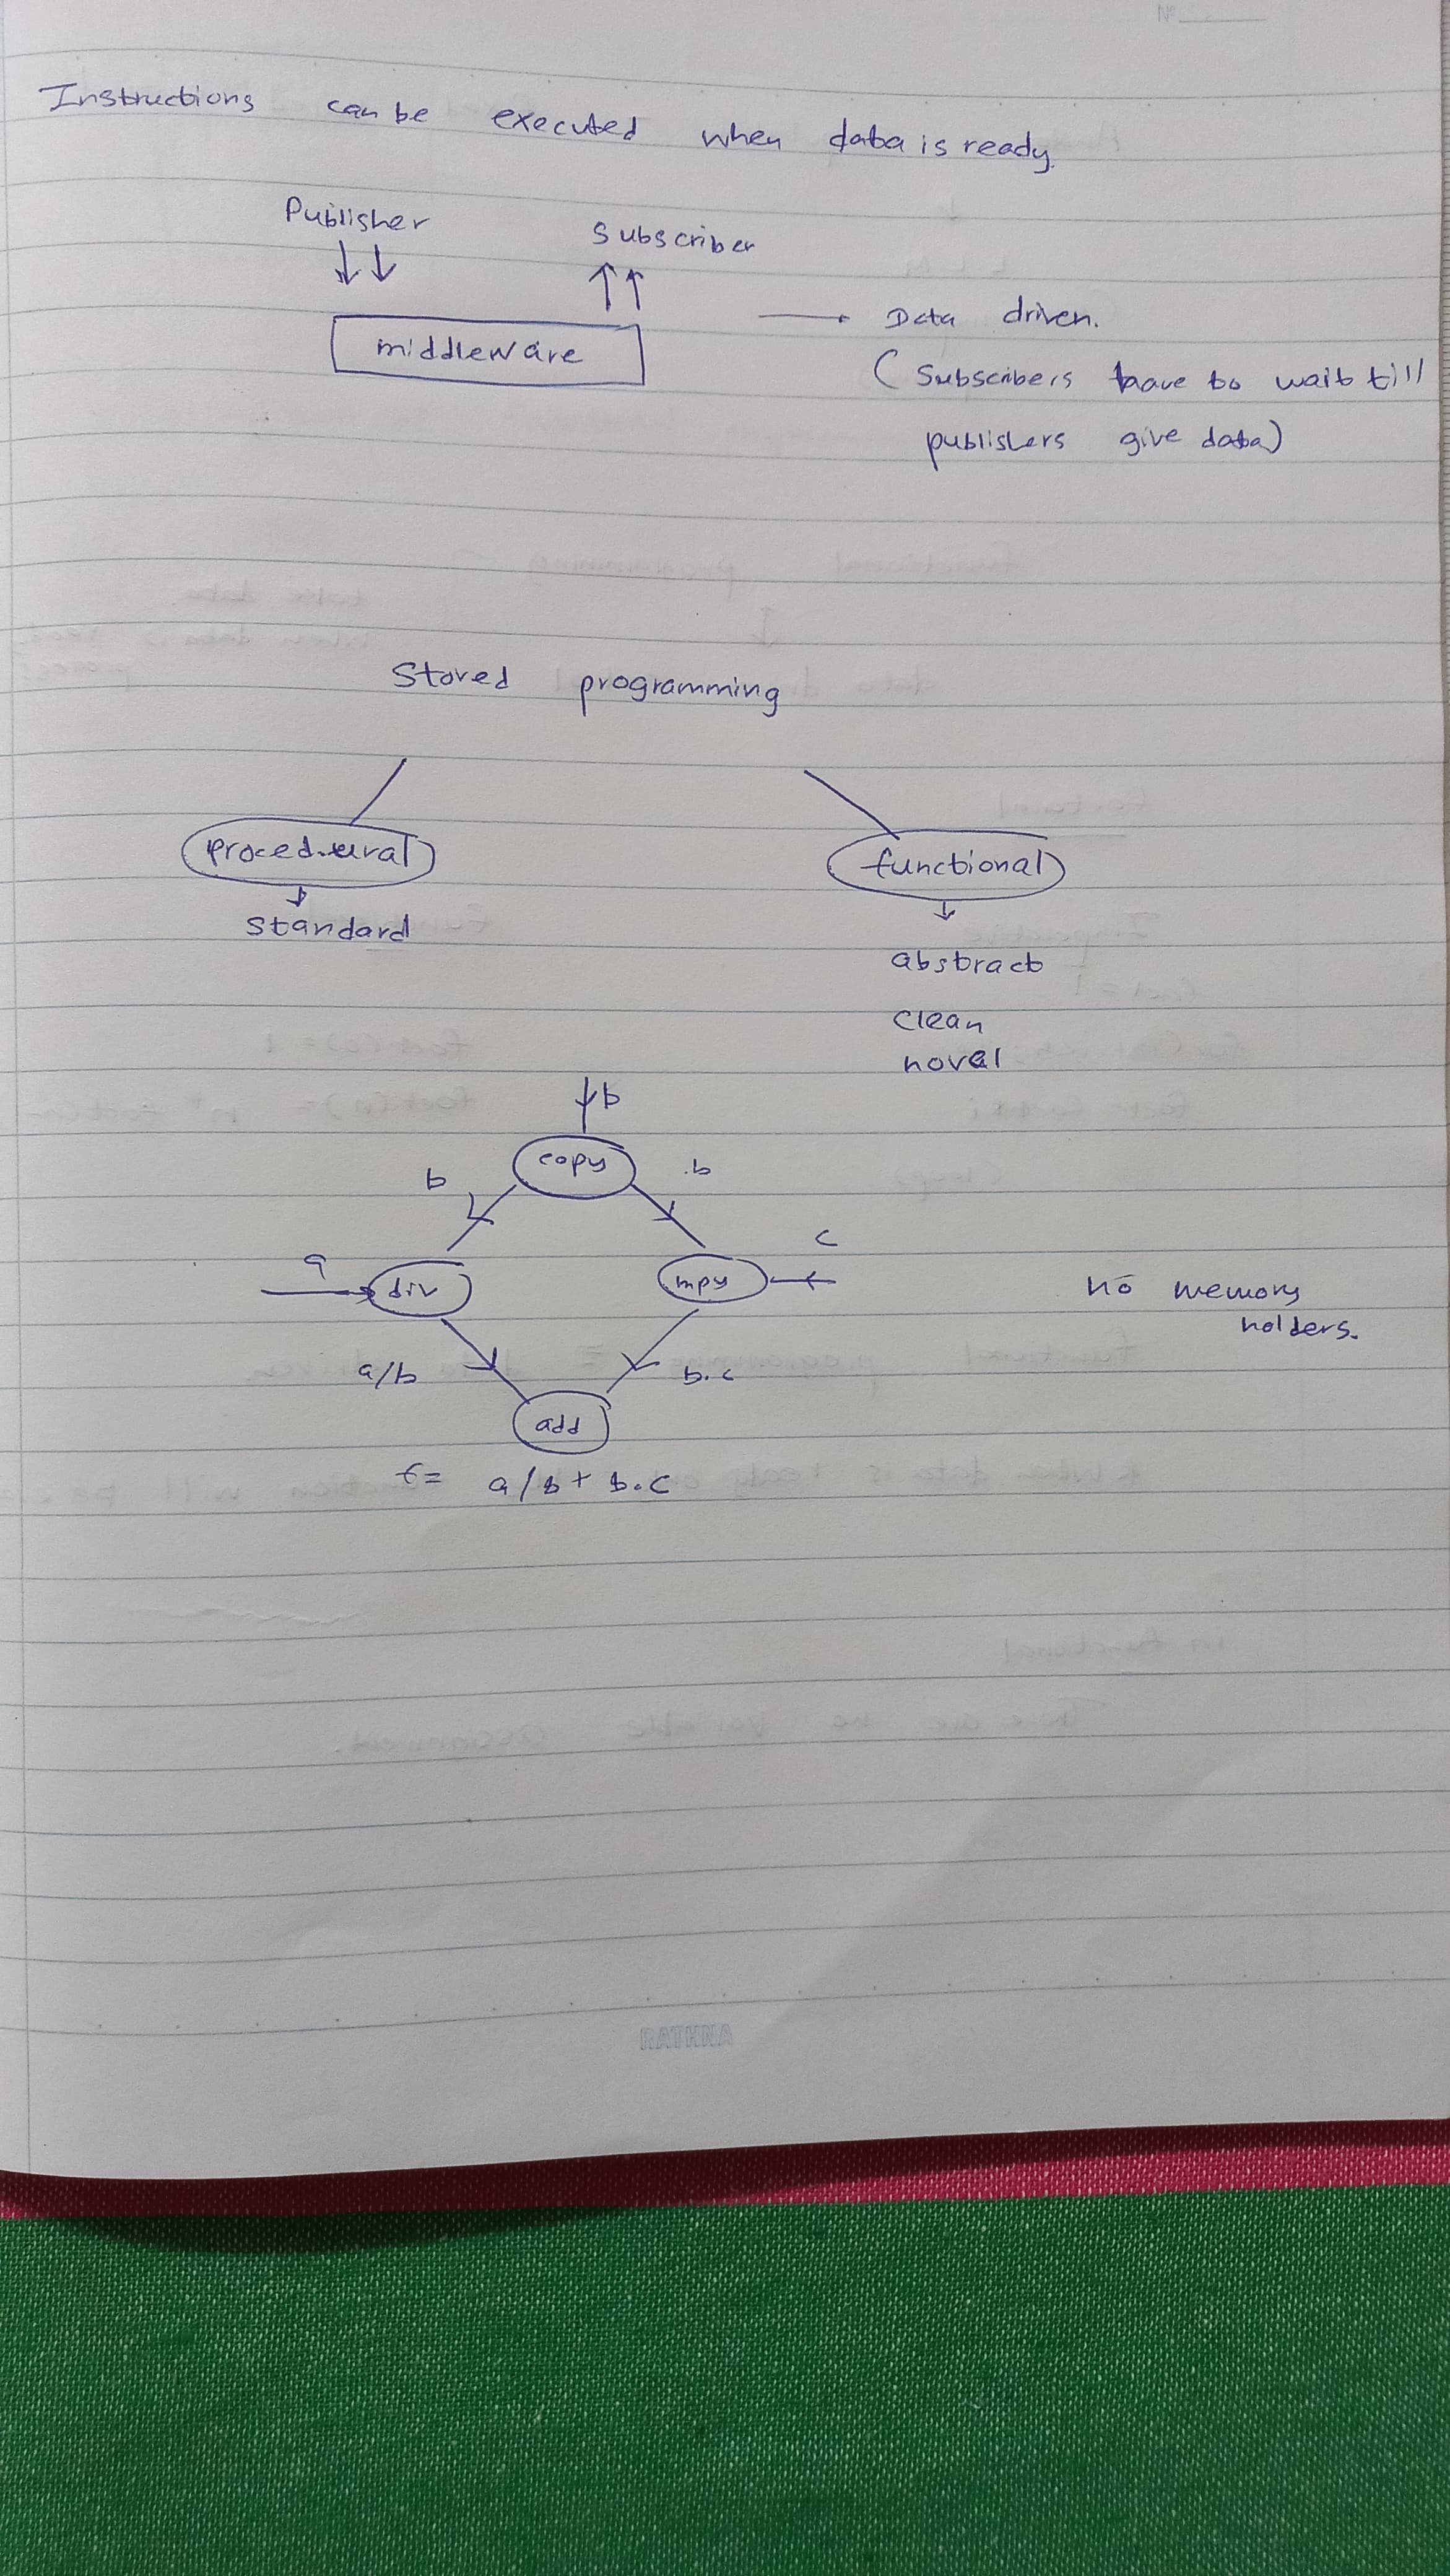 Instructions can be executed when data is ready.
Publisher subscriber
middleware
→ Data driven.
(Subscribers have to wait till
publishers give data)
Stored programming
procedural functional
standard
abstract
clean
novel
b
copy
b b
a c
div mpy
no memory
holders.
a/b b.c
add
f= a/b + b.c
RATHNA